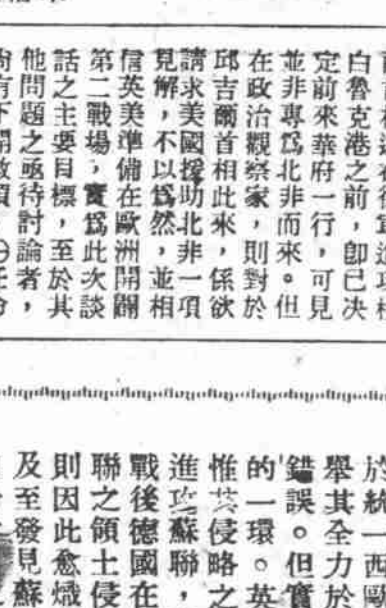 白魯克港之前，卽已决
定前來華府一行，可見
並非專爲北非而來。但
在政治觀察家，則對於
邱吉爾首相此來，係欲
請求美國援助北非一項
見解，不以爲然，並相
信英美準備在歐洲開闢
第二戰場，實爲此次談
話之主要目標，至於其
他問題之亟待討論者，
於統一西歐
舉其全力於
錯誤。但實
的一環。英
惟英侵略之
進攻蘇聯，
戰後德國在
聯之領土侵
則因此愈熾
及至發見蘇